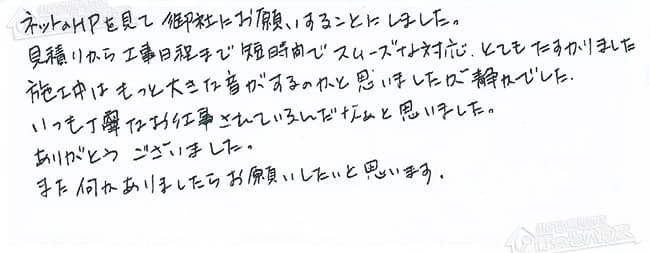 ネットのHPを見て 御社にお願いすることにしました。
見積りから工事日程まで短時間でスムーズな対応、とてもたすかりました
施工中はもっと大きな音がするのかと思いましたが静かでした。
いつも丁寧なお仕事されているんだなぁと思いました。
ありがとうございました。
また何かありましたらお願いしたいと思います。